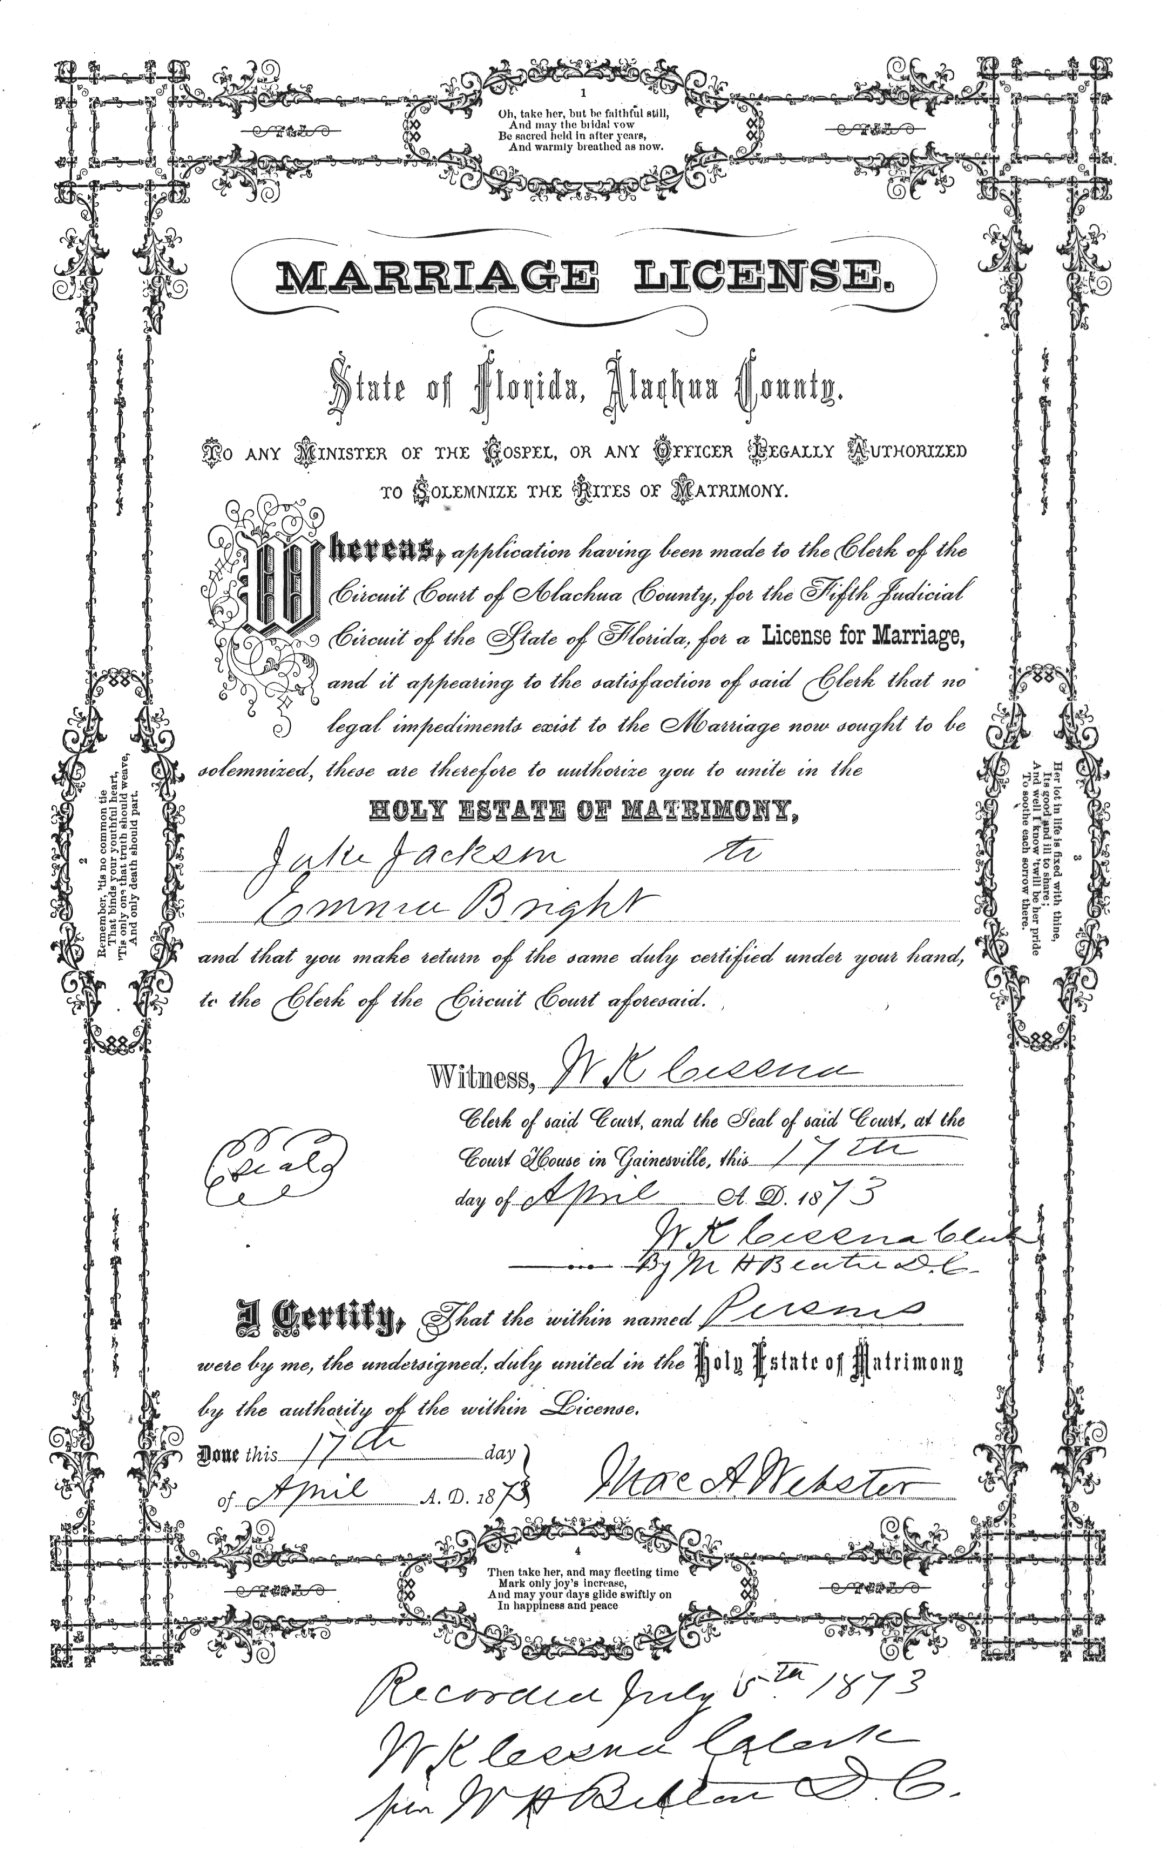 1
Oh, take her, but be faithful still,
And may the bridal vow
Be sacred held in after years,
And warmly breathed as now.
MARRIAGE LICENSE.
State of Florida, Alachua County.
TO ANY MINISTER OF THE GOSPEL, OR ANY OFFICER LEGALLY AUTHORIZED
TO SOLEMNIZE THE RITES OF MATRIMONY.
Whereas, application having been made to the Clerk of the
Circuit Court of Alachua County, for the Fifth Judicial
Circuit of the State of Florida, for a License for Marriage,
and it appearing to the satisfaction of said Clerk that no
legal impediments exist to the Marriage now sought to be
solemnized, these are therefore to authorize you to unite in the
HOLY ESTATE OF MATRIMONY,
Jake Jackson to
Emma Bright
and that you make return of the same duly certified under your hand,
to the Clerk of the Circuit Court aforesaid.
Witness, W K Cessna
Clerk of said Court, and the Seal of said Court, at the
Court House in Gainesville, this 17th
day of April A. D. 1873
Seal
W K Cessna Clerk
By M H D. C.
I Certify, That the within named Persons
were by me, the undersigned, duly united in the Holy Estate of Matrimony
by the authority of the within License.
Done this 17th day
of April A. D. 1873
Mac A Webster
2
Remember, 'tis no common tie
That binds your youthful heart,
'Tis only one that truth should weave,
And only death should part.
3
Her lot in life is fixed with thine,
Its good and ill to share;
And well I know 'twill be her pride
To soothe each sorrow there.
4
Then take her, and may fleeting time
Mark only joy's increase,
And may your days glide swiftly on
In happiness and peace
Recorded July 5th 1873
W K Cessna Clerk
per W H Belton D. C.